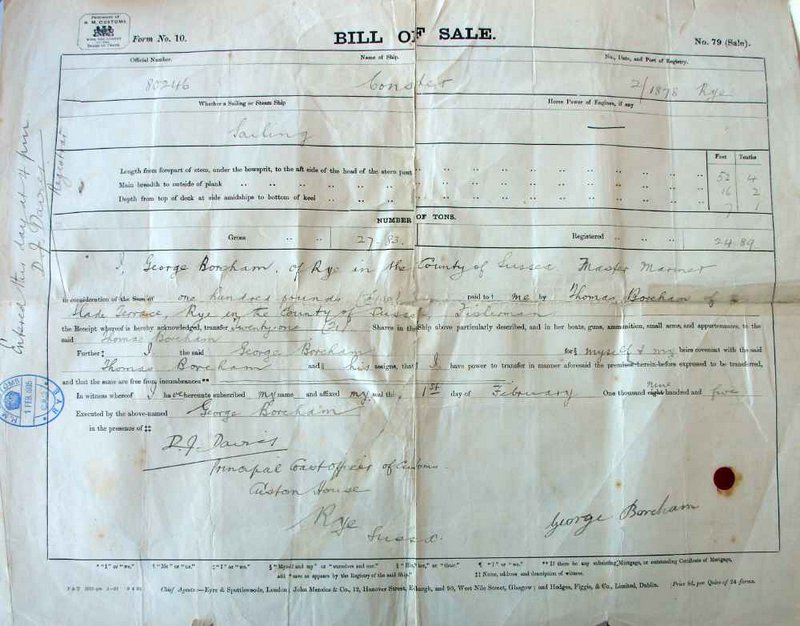 H. M. CUSTOMS
Form No. 10.
BILL OF SALE.
No. 79 (Sale).
Official Number. Name of Ship. No., Date, and Port of Registry.
80246 Conster 2/1878 Rye
Whether a Sailing or Steam Ship Horse Power of Engines, if any
Sailing —
Feet Tenths
Length from forepart of stem, under the bowsprit, to the aft side of the head of the stern post 52 4
Main breadth to outside of plank 16 2
Depth from top of deck at side amidships to bottom of keel 7 1
NUMBER OF TONS.
Gross 27.83 Registered 24.89
I, George Boreham, of Rye in the County of Sussex Master Mariner
in consideration of the Sum of one hundred pounds paid to † me by Thomas Boreham of
Slade Terrace, Rye in the County of Sussex, Fisherman
the Receipt whereof is hereby acknowledged, transfer twenty-one (21) Shares in the Ship above particularly described, and in her boats, guns, ammunition, small arms, and appurtenances, to the
said Thomas Boreham
Further ‡ I the said George Boreham for § myself & my heirs covenant with the said
Thomas Boreham and his assigns, that I have power to transfer in manner aforesaid the premises herein-before expressed to be transferred,
and that the same are free from incumbrances**
In witness whereof I have hereunto subscribed my name and affixed my seal this 1st day of February One thousand eight nine hundred and five
Executed by the above-named George Boreham
in the presence of ‡‡
D. J. Davies
Principal Coast Officer of Customs
Custom House
Rye
Sussex.
George Boreham
Entered this day at 4 pm
D. J. Davies
Registrar
1 FEB 1905
* "I" or "we." † "Me" or "us." ‡ "I" or "we." § "Myself and my" or "ourselves and our." ‖ "His," "her," or "their." ¶ "I" or "we." ** If there be any subsisting Mortgage, or outstanding Certificate of Mortgage,
add "save as appears by the Registry of the said Ship."
‡‡ Name, address and description of witness.
Chief Agents:—Eyre & Spottiswoode, London; John Menzies & Co., 12, Hanover Street, Edinburgh, and 90, West Nile Street, Glasgow; and Hodges, Figgis, & Co., Limited, Dublin.
Price 8d. per Quire of 24 forms.